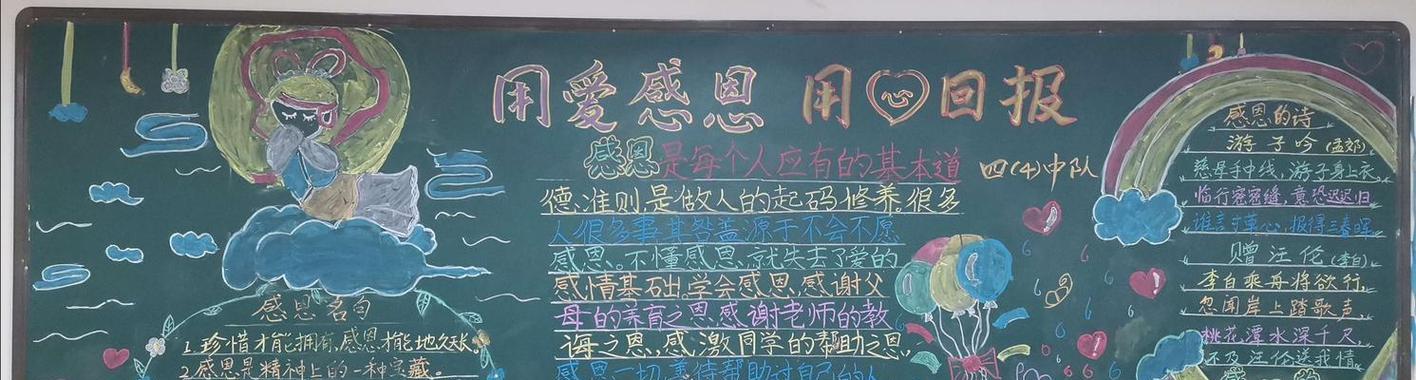 用爱感恩 用心回报
四(4)中队
感恩是每个人应有的基本道
德准则,是做人的起码修养。很多
人很多事,其咎盖源于不会不愿
感恩。不懂感恩,就失去了爱的
感情基础。学会感恩,感谢父
母的养育之恩,感谢老师的教
诲之恩,感激同学的帮助之恩,
感恩一切善待帮助过自己的人
感恩名句
1.珍惜才能拥有,感恩才能地久天长。
2.感恩是精神上的一种宝藏。
感恩的诗
游子吟(孟郊)
慈母手中线,游子身上衣,
临行密密缝,意恐迟迟归
谁言寸草心,报得三春晖
赠汪伦(李白)
李白乘舟将欲行,
忽闻岸上踏歌声,
桃花潭水深千尺,
不及汪伦送我情。
感恩